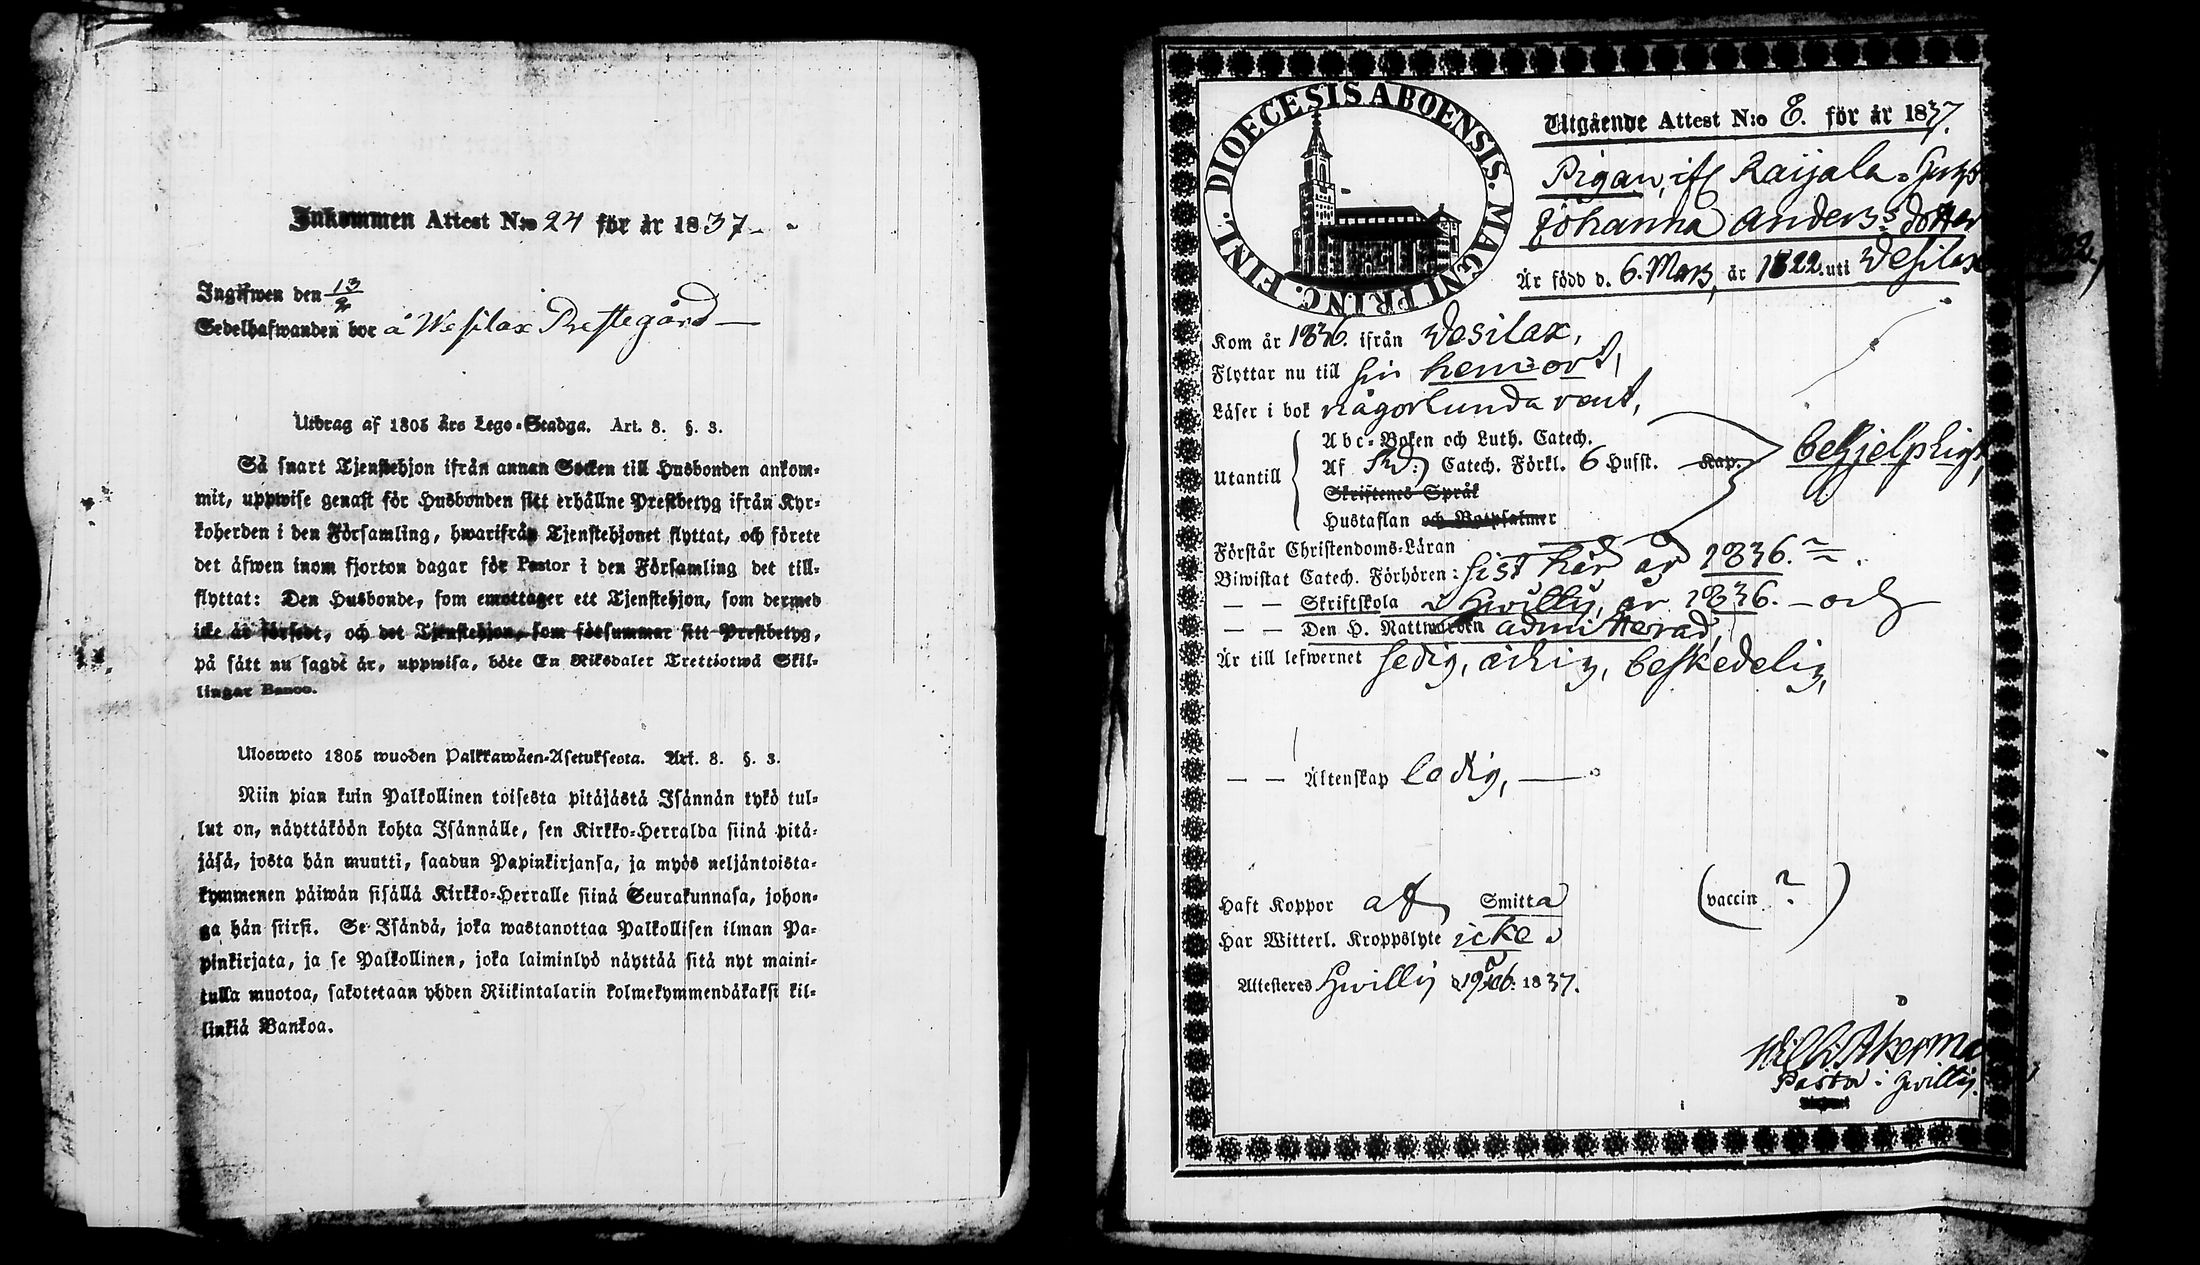 Inkommen Attest N:o 24 för år 1837
Ingifwen den 13/2
Sedelhafwanden bor å Wesilax Prestegård
Utdrag af 1805 års Lego-Stadga. Art. 8. §. 3.
Så snart Tjenstehjon ifrån annan Socken till Husbonden ankom-
mit, uppwise genast för Husbonden sitt erhållne Prestbetyg ifrån Kyr-
koherden i den Församling, hwarifrån Tjenstehjonet flyttat, och förete
det äfwen inom fjorton dagar för Pastor i den Församling det till-
flyttat: Den Husbonde, som emottager ett Tjenstehjon, som dermed
icke är försedt, och det Tjenstehjon, som försummar sitt Prestbetyg,
på sätt nu sagdt är, uppwisa, böte En Riksdaler Trettiotwå Skil-
lingar Banco.
Ulosweto 1805 wuoden Palkkawäen-Asetuksesta. Art. 8. §. 3.
Niin pian kuin Palkollinen toisesta pitäjästä Isännän tykö tul-
lut on, näyttäköön kohta Isännälle, sen Kirkko-Herralda siinä pitä-
jäsä, josta hän muutti, saadun Papinkirjansa, ja myös neljäntoista-
kymmenen päiwän sisällä Kirkko-Herralle siinä Seurakunnasa, johon-
ga hän siirsi. Se Isändä, joka wastanottaa Palkollisen ilman Pa-
pinkirjata, ja se Palkollinen, joka laiminlyö näyttää sitä nyt maini-
tulla muotoa, sakotetaan yhden Riikintalarin kolmekymmendäkaksi kil-
linkiä Bankoa.
DIOECESIS ABOENSIS. MAGNI PRINC. FINL.
Utgående Attest N:o 8. för år 1837.
Pigan, ifr Raijala
Johanna Anders dotter
Är född d. 6. Mars, år 1822. uti Wesilax
Kom år 1836. ifrån Wesilax,
Flyttar nu till sin hem-ort,
Läser i bok någorlunda rent,
Utantill
Abc-Boken och Luth. Catech.
Af Catech. Förkl. 6 Hufst. Kap.
Skriftenes Språk
Hustaflan och Botpsalmer
behjelpligt,
Förstår Christendoms-Läran
Biwistat Catech. Förhören: sist här år 1836.
— — Skriftskola i Hwittis, år 1836. och
— — Den H. Nattward admitterad,
Är till lefwernet sedig, ärlig, beskedelig,
— — Äktenskap ledig,
Haft Koppor af Smitta (vaccin ?)
Har Witterl. Kroppslyte icke
Attesteres Hwittis d. 19 1837.
Åkerma
Pastor i Hwittis.